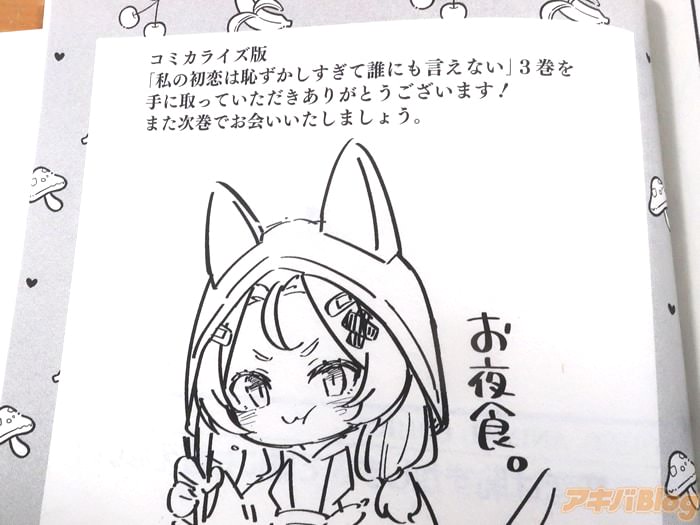 コミカライズ版
「私の初恋は恥ずかしすぎて誰にも言えない」3巻を
手に取っていただきありがとうございます！
また次巻でお会いいたしましょう。
お夜食。
アキバBlog